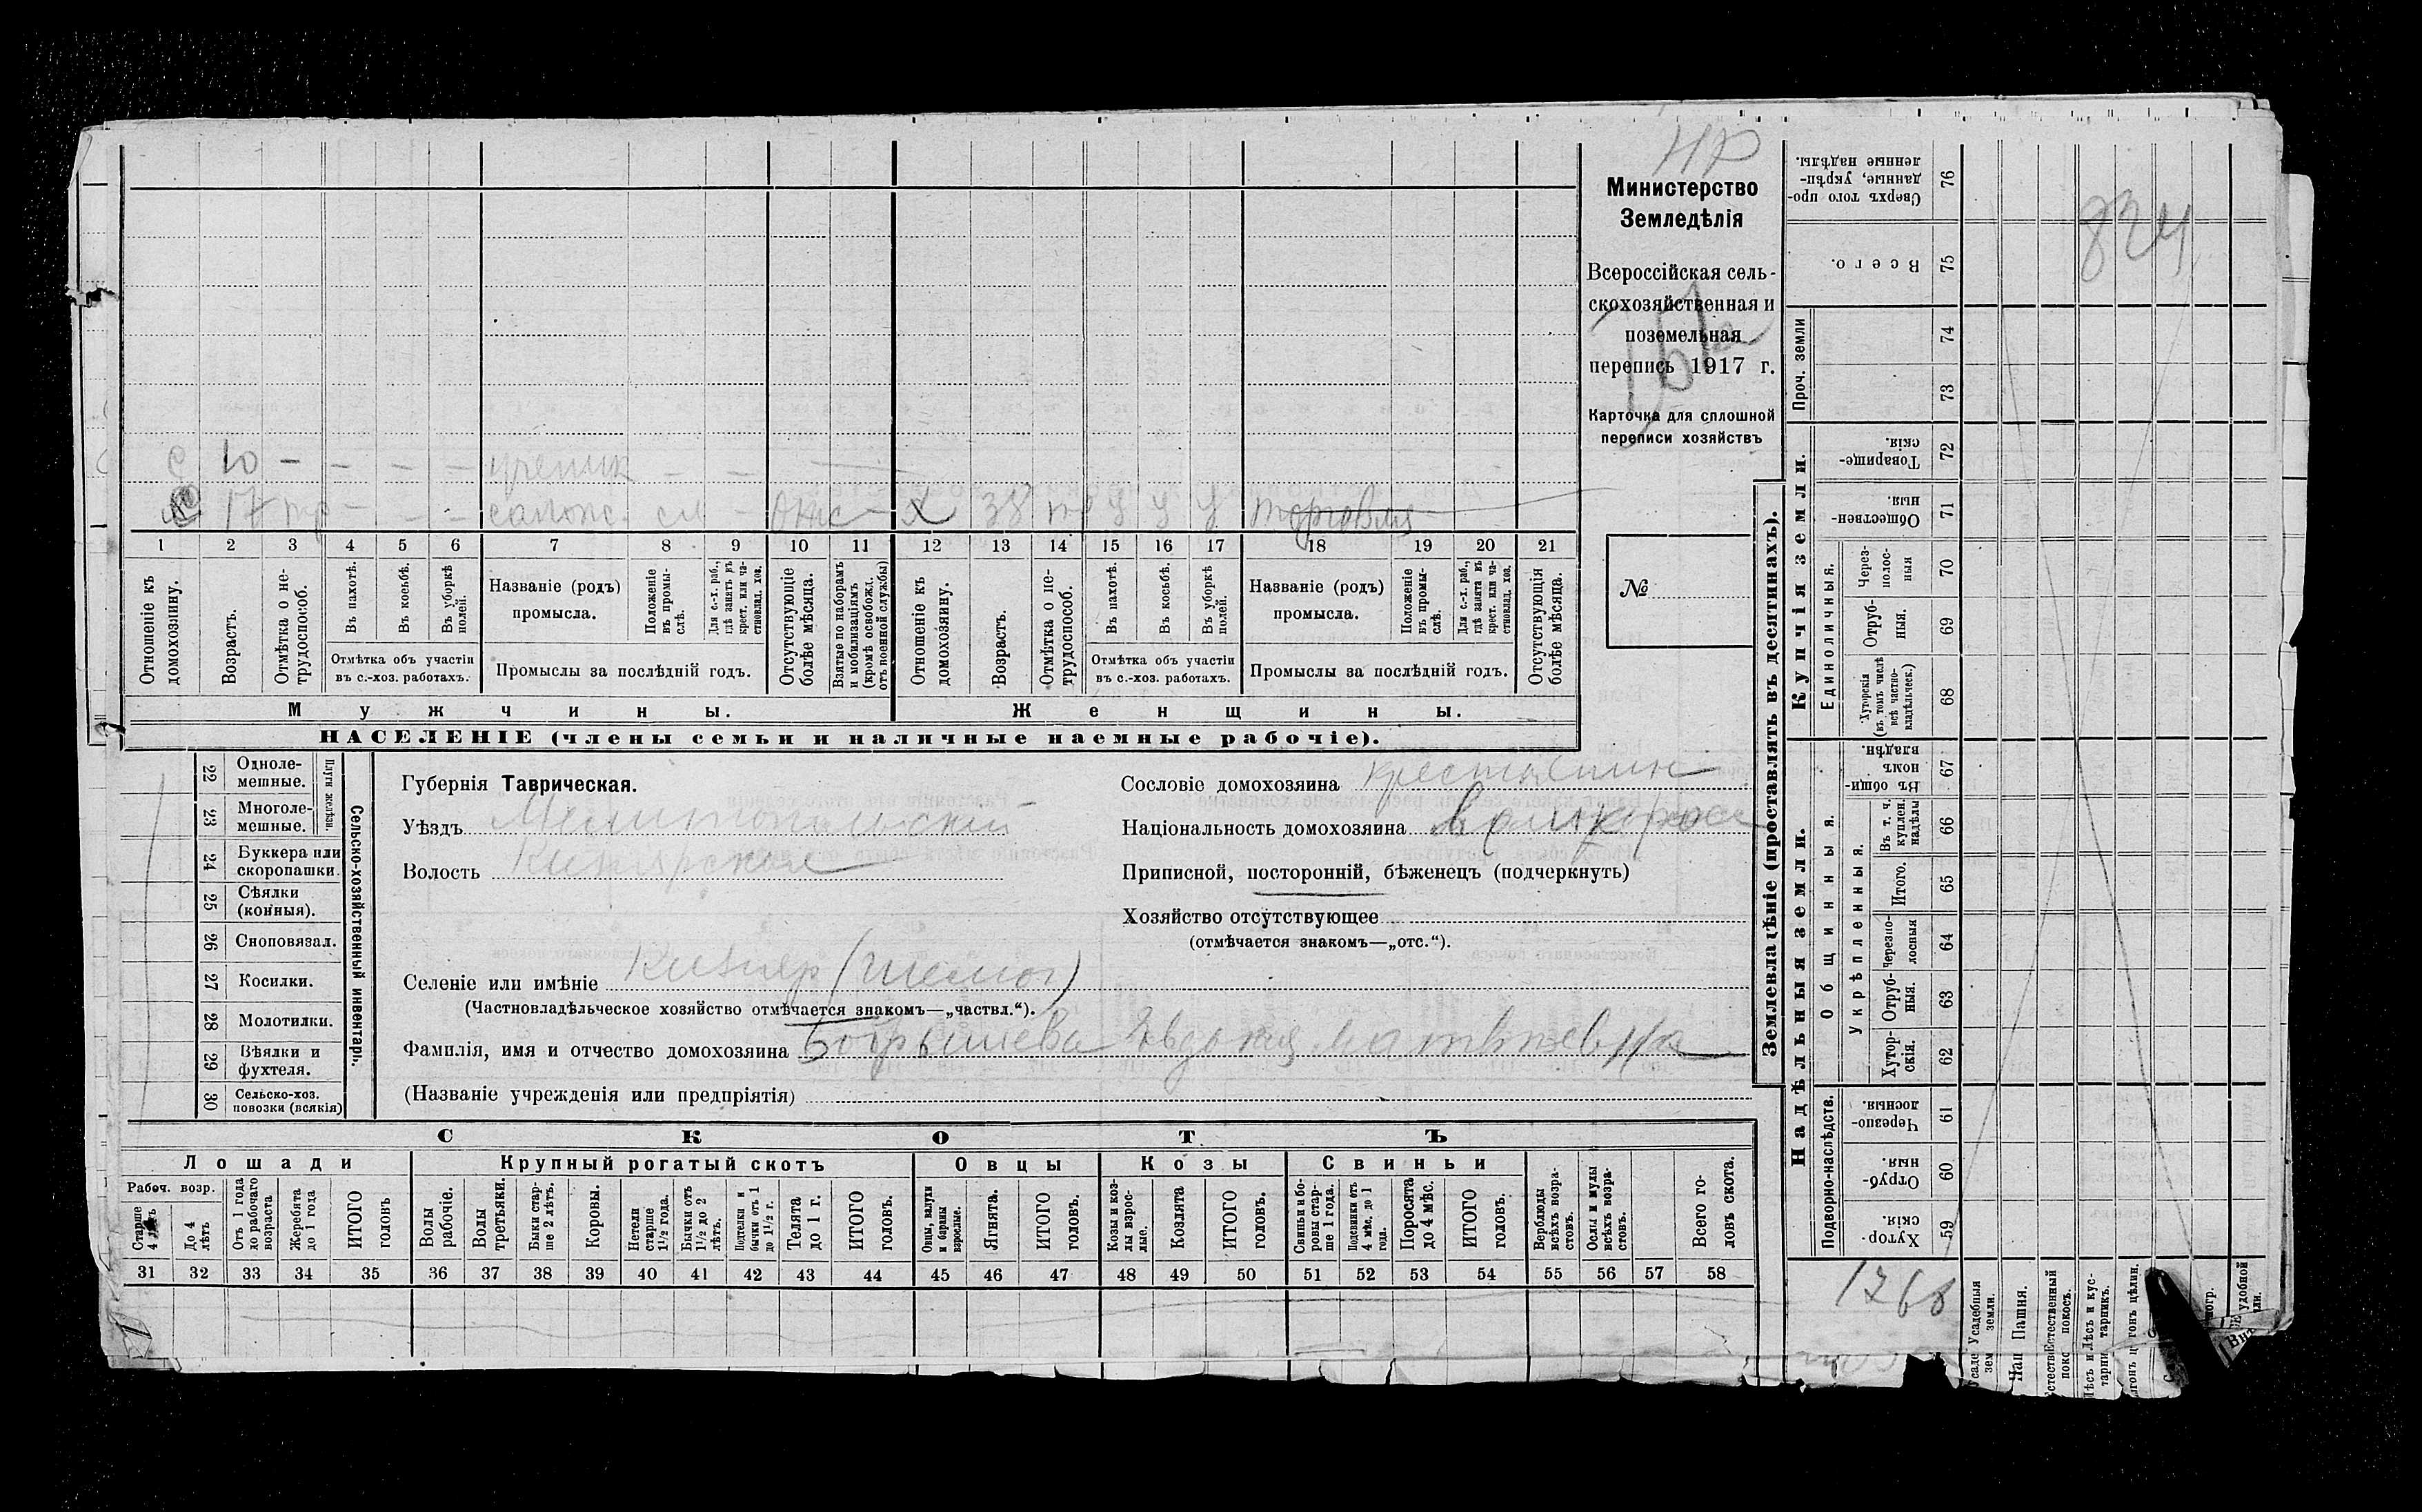 НР
Министерство
Земледѣлія
Всероссійская сель-
скохозяйственная и
поземельная
перепись 1917 г.
Карточка для сплошной
переписи хозяйствъ
№
С 10 — — — — ученик — —
17 — — — сл — Х 38 У У У торговля
1 2 3 4 5 6 7 8 9 10 11 12 13 14 15 16 17 18 19 20 21
Отношеніе къ домохозяину.
Возрастъ.
Отмѣтка о не-трудоспособ.
Въ пахотѣ.
Въ косьбѣ.
Въ уборкѣ полей.
Отмѣтка объ участіи
въ с.-хоз. работахъ.
Названіе (родъ)
промысла.
Положеніе въ промы-слѣ.
Для с.-х. раб., гдѣ занятъ въ крест. или ча-стновлад. хоз.
Промыслы за послѣдній годъ.
Отсутствующіе болѣе мѣсяца.
Взятые по наборамъ и мобилизаціямъ (кромѣ освобожд. отъ военной службы)
Отношеніе къ домохозяину.
Возрастъ.
Отмѣтка о не-трудоспособ.
Въ пахотѣ.
Въ косьбѣ.
Въ уборкѣ полей.
Отмѣтка объ участіи
въ с.-хоз. работахъ.
Названіе (родъ)
промысла.
Положеніе въ промы-слѣ.
Для с.-х. раб., гдѣ занята въ крест. или ча-стновлад. хоз.
Промыслы за послѣдній годъ.
Отсутствующія болѣе мѣсяца.
Мужчины.
Женщины.
НАСЕЛЕНІЕ (члены семьи и наличные наемные рабочіе).
22 Одноле-мешные.
23 Многоле-мешные.
Плуги желѣзн.
24 Буккера или скоропашки.
25 Сѣялки (конныя).
26 Сноповязал.
27 Косилки.
28 Молотилки.
29 Вѣялки и фухтеля.
30 Сельско-хоз. повозки (всякія)
Сельско-хозяйственный инвентарь.
Губернія Таврическая.
Уѣздъ Мелитопольскій
Волость Кизіярская
Селеніе или имѣніе Кизіяр
(Частновладѣльческое хозяйство отмѣчается знакомъ—„частвл.“).
Фамилія, имя и отчество домохозяина Богрышева Евдокия Матвѣевна
(Названіе учрежденія или предпріятія)
Сословіе домохозяина крестьянин
Національность домохозяина великорос
Приписной, посторонній, бѣженецъ (подчеркнуть)
Хозяйство отсутствующее
(отмѣчается знакомъ—„отс.“).
СКОТЪ
Лошади
Крупный рогатый скотъ
Овцы
Козы
Свиньи
Рабоч. возр.
Старше 4 лѣтъ
До 4 лѣтъ
Отъ 1 года до рабочаго возраста
Жеребята до 1 года
ИТОГО головъ
Волы рабочіе.
Волы третьяки.
Быки стар-ше 2 лѣтъ.
Коровы.
Нетели старше 1½ года.
Бычки отъ 1½ до 2 лѣтъ.
Подтелки и бычки отъ 1 до 1½ г.
Телята до 1 г.
ИТОГО головъ.
Овцы, валухи и бараны взрослые.
Ягнята.
ИТОГО головъ.
Козы и коз-лы взрос-лые.
Козлята
ИТОГО головъ.
Свиньи и бо-ровы стар-ше 1 года.
Подсвинки отъ 4 мѣс. до 1 года.
Поросята до 4 мѣс.
ИТОГО головъ.
Верблюды всѣхъ возра-стовъ.
Ослы и мулы всѣхъ возра-стовъ.
Всего го-ловъ скота.
31 32 33 34 35 36 37 38 39 40 41 42 43 44 45 46 47 48 49 50 51 52 53 54 55 56 57 58
Землевладѣніе (проставлять въ десятинахъ).
Купчія земли.
Надѣльныя земли.
Сверхъ того про-данные, укрѣп-ленные надѣлы.
76
Всего.
75
Проч. земли
74
73
Товарище-скія.
72
Обществен-ныя.
71
Единоличныя.
Через-полос-ныя
70
Отруб-ныя.
69
Хуторскія (въ томъ числѣ всѣ частно-владѣльческ.)
68
Общинныя.
Въ общин-номъ владѣн.
67
Укрѣпленныя.
Въ т. ч. куплен. надѣлы
66
Итого.
65
Черезпо-лосныя
64
Отруб-ныя.
63
Хутор-скія.
62
Подворно-наслѣдств.
Черезпо-лосныя.
61
Отруб-ныя.
60
Хутор-скія.
59
824
1768
Усадебныя земли.
Пашня.
Естественный покосъ.
Лѣсъ и кус-тарникъ.